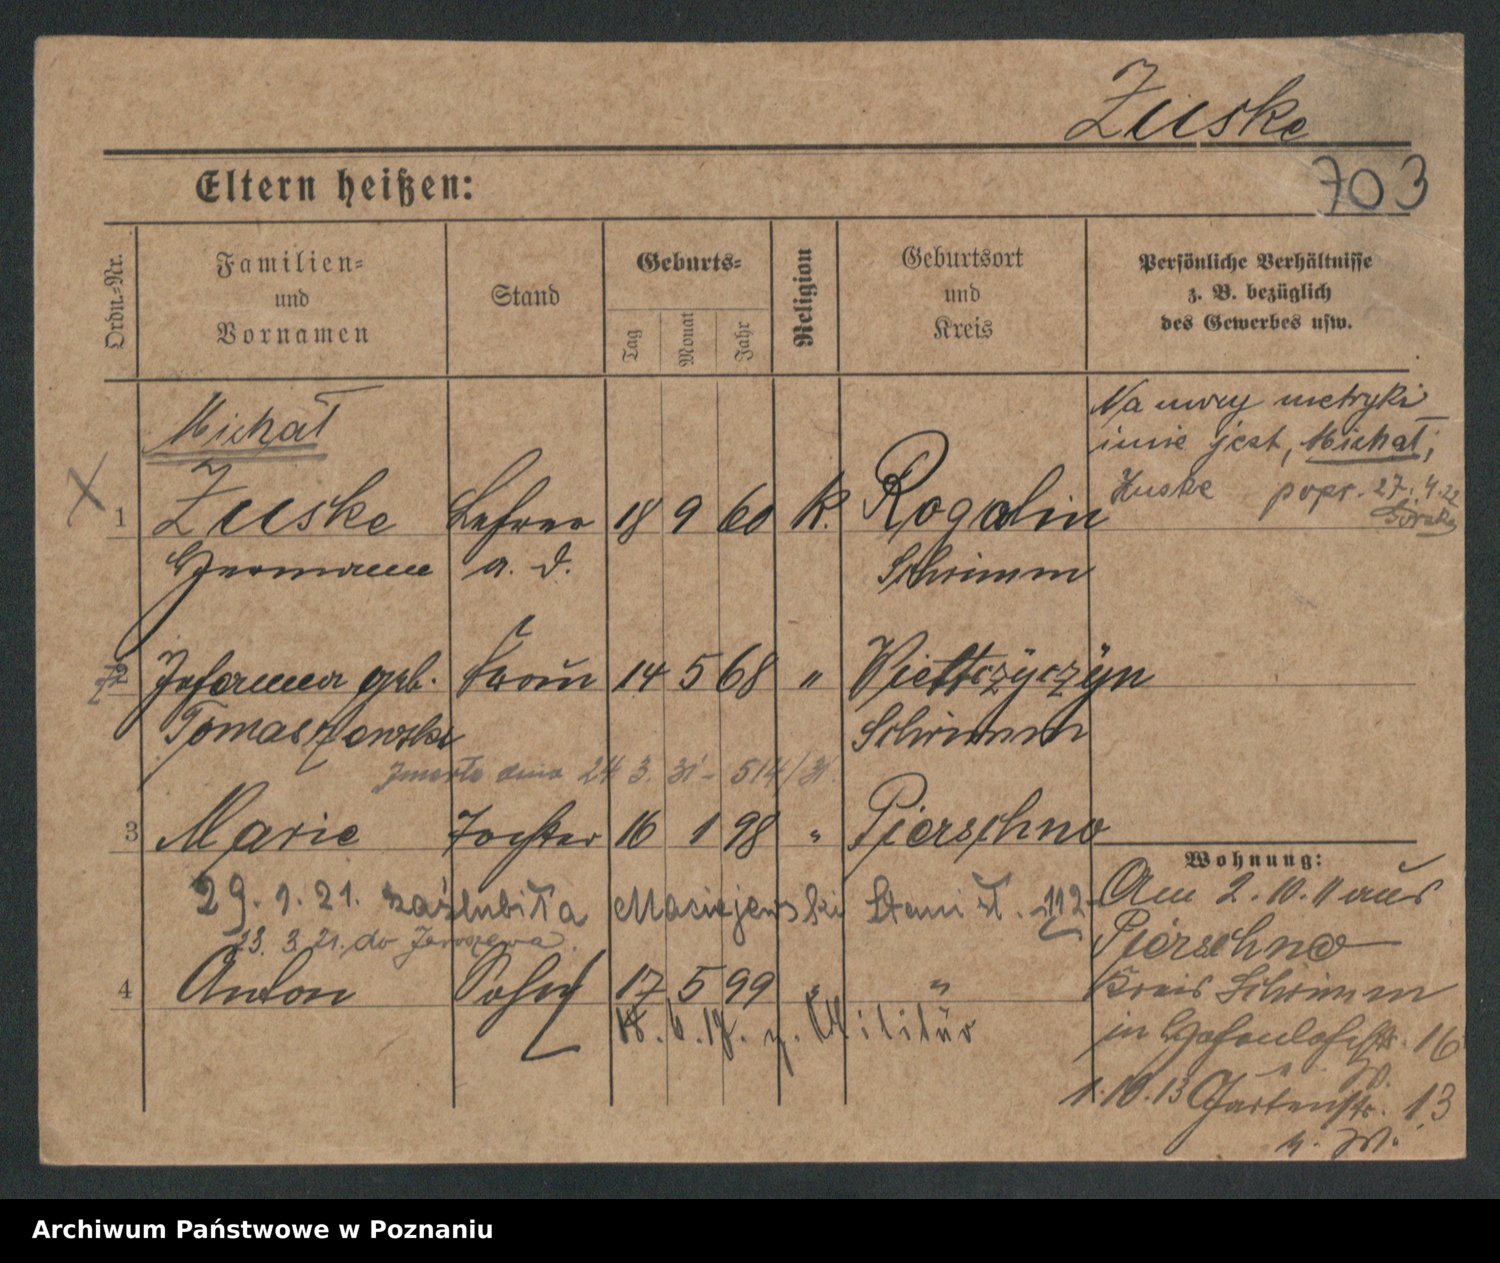 Zuske
703
Eltern heißen:
Ordn.-Nr.
Familien-
und
Vornamen
Stand
Geburts-
Tag
Monat
Jahr
Religion
Geburtsort
und
Kreis
Persönliche Verhältnisse
z. B. bezüglich
des Gewerbes usw.
Michał
Na mocy metryki
imię jest, Michał;
Zuske popr. 27. 4. 22
1 Zuske Lehrer 18 9 60 k. Rogalin
Hermann a. D. Schrimm
2 Johanna geb. Frau 14 5 68 " Wieszczyczyn
Tomaszewska Schrimm
Zmarła dnia 24 3. 31 - 514/31
3 Marie Tochter 16 1 98 " Pierschno
29. 1. 21. zaślubiła Maciejewski Stanisł. 112
23. 3. 21. do Jaroszewa.
4 Anton Sohn 17 5 99 " "
18. 6. 17. z. Militär
Wohnung:
Am 2. 10. 11 aus
Pierschno
Kreis Schrimm
in Hohenlohestr. 16
1. 10. 13 Gartenstr. 13
Archiwum Państwowe w Poznaniu